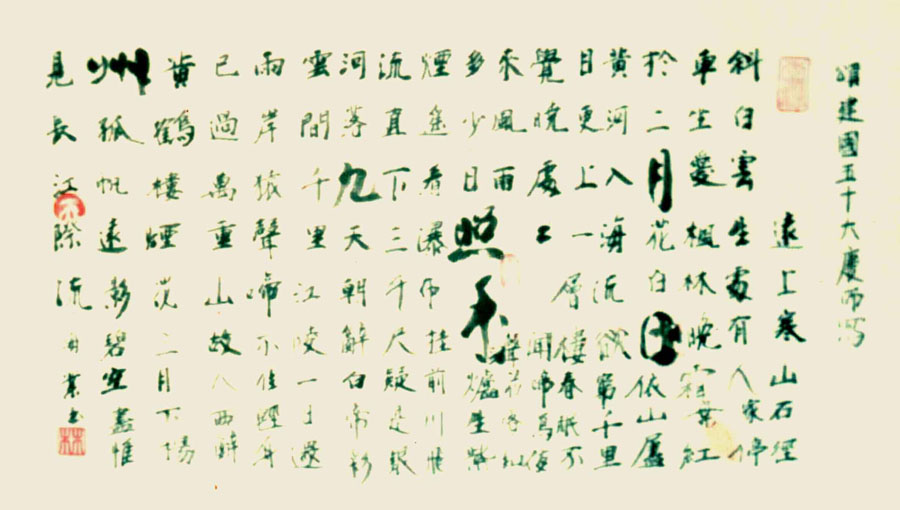 頌建國五十大慶而写
遠上寒山石徑
斜白雲生處有人家停
車坐愛楓林晚霜葉紅
於二月花白日依山盡
黄河入海流欲窮千里
目更上一層樓春眠不
覺曉處々聞啼鳥夜
來風雨聲花落知
多少日照香爐生紫
煙遙看瀑布挂前川飛
流直下三千尺疑是銀
河落九天朝辭白帝彩
雲間千里江陵一日還
兩岸猿聲啼不住輕舟
已過萬重山故人西辭
黄鶴樓煙花三月下揚
州孤帆遠影碧空盡惟
見長江天際流